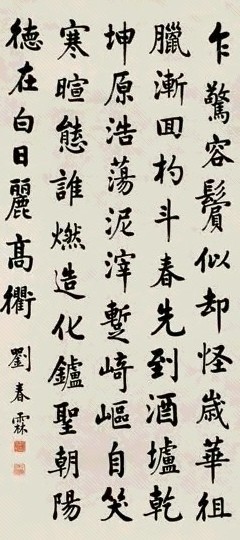 乍驚容鬢似却怪歲華徂
臘漸回杓斗春先到酒壚乾
坤原浩蕩泥滓蹔崎嶇自笑
寒暄態誰燃造化鑪聖朝陽
德在白日麗高衢
劉春霖